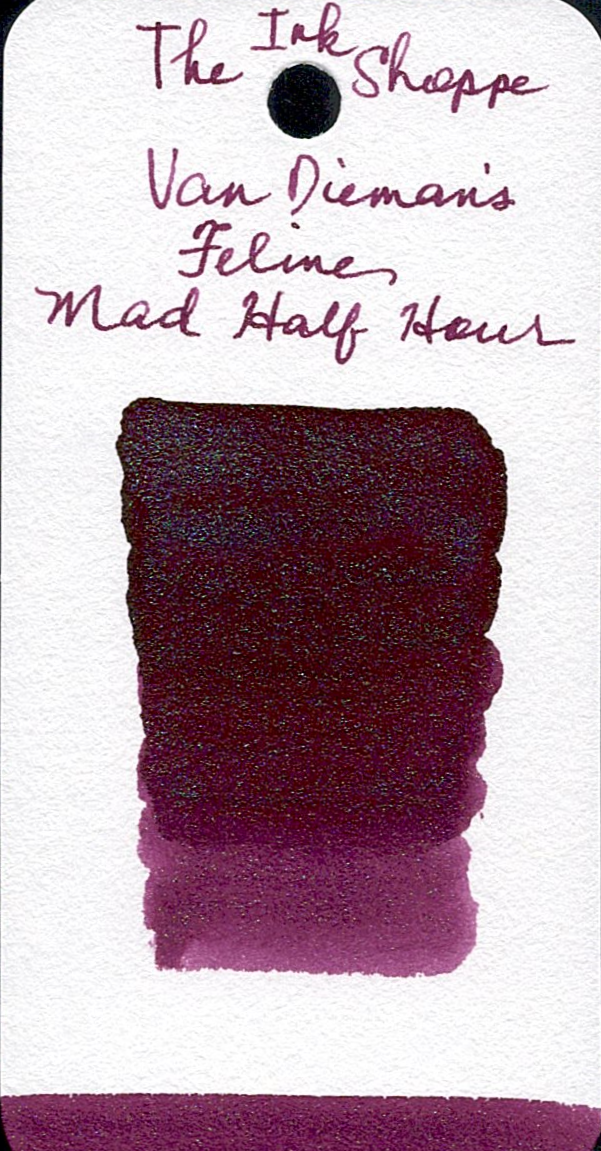 The Ink Shoppe
Van Dieman's
Feline
Mad Half Hour